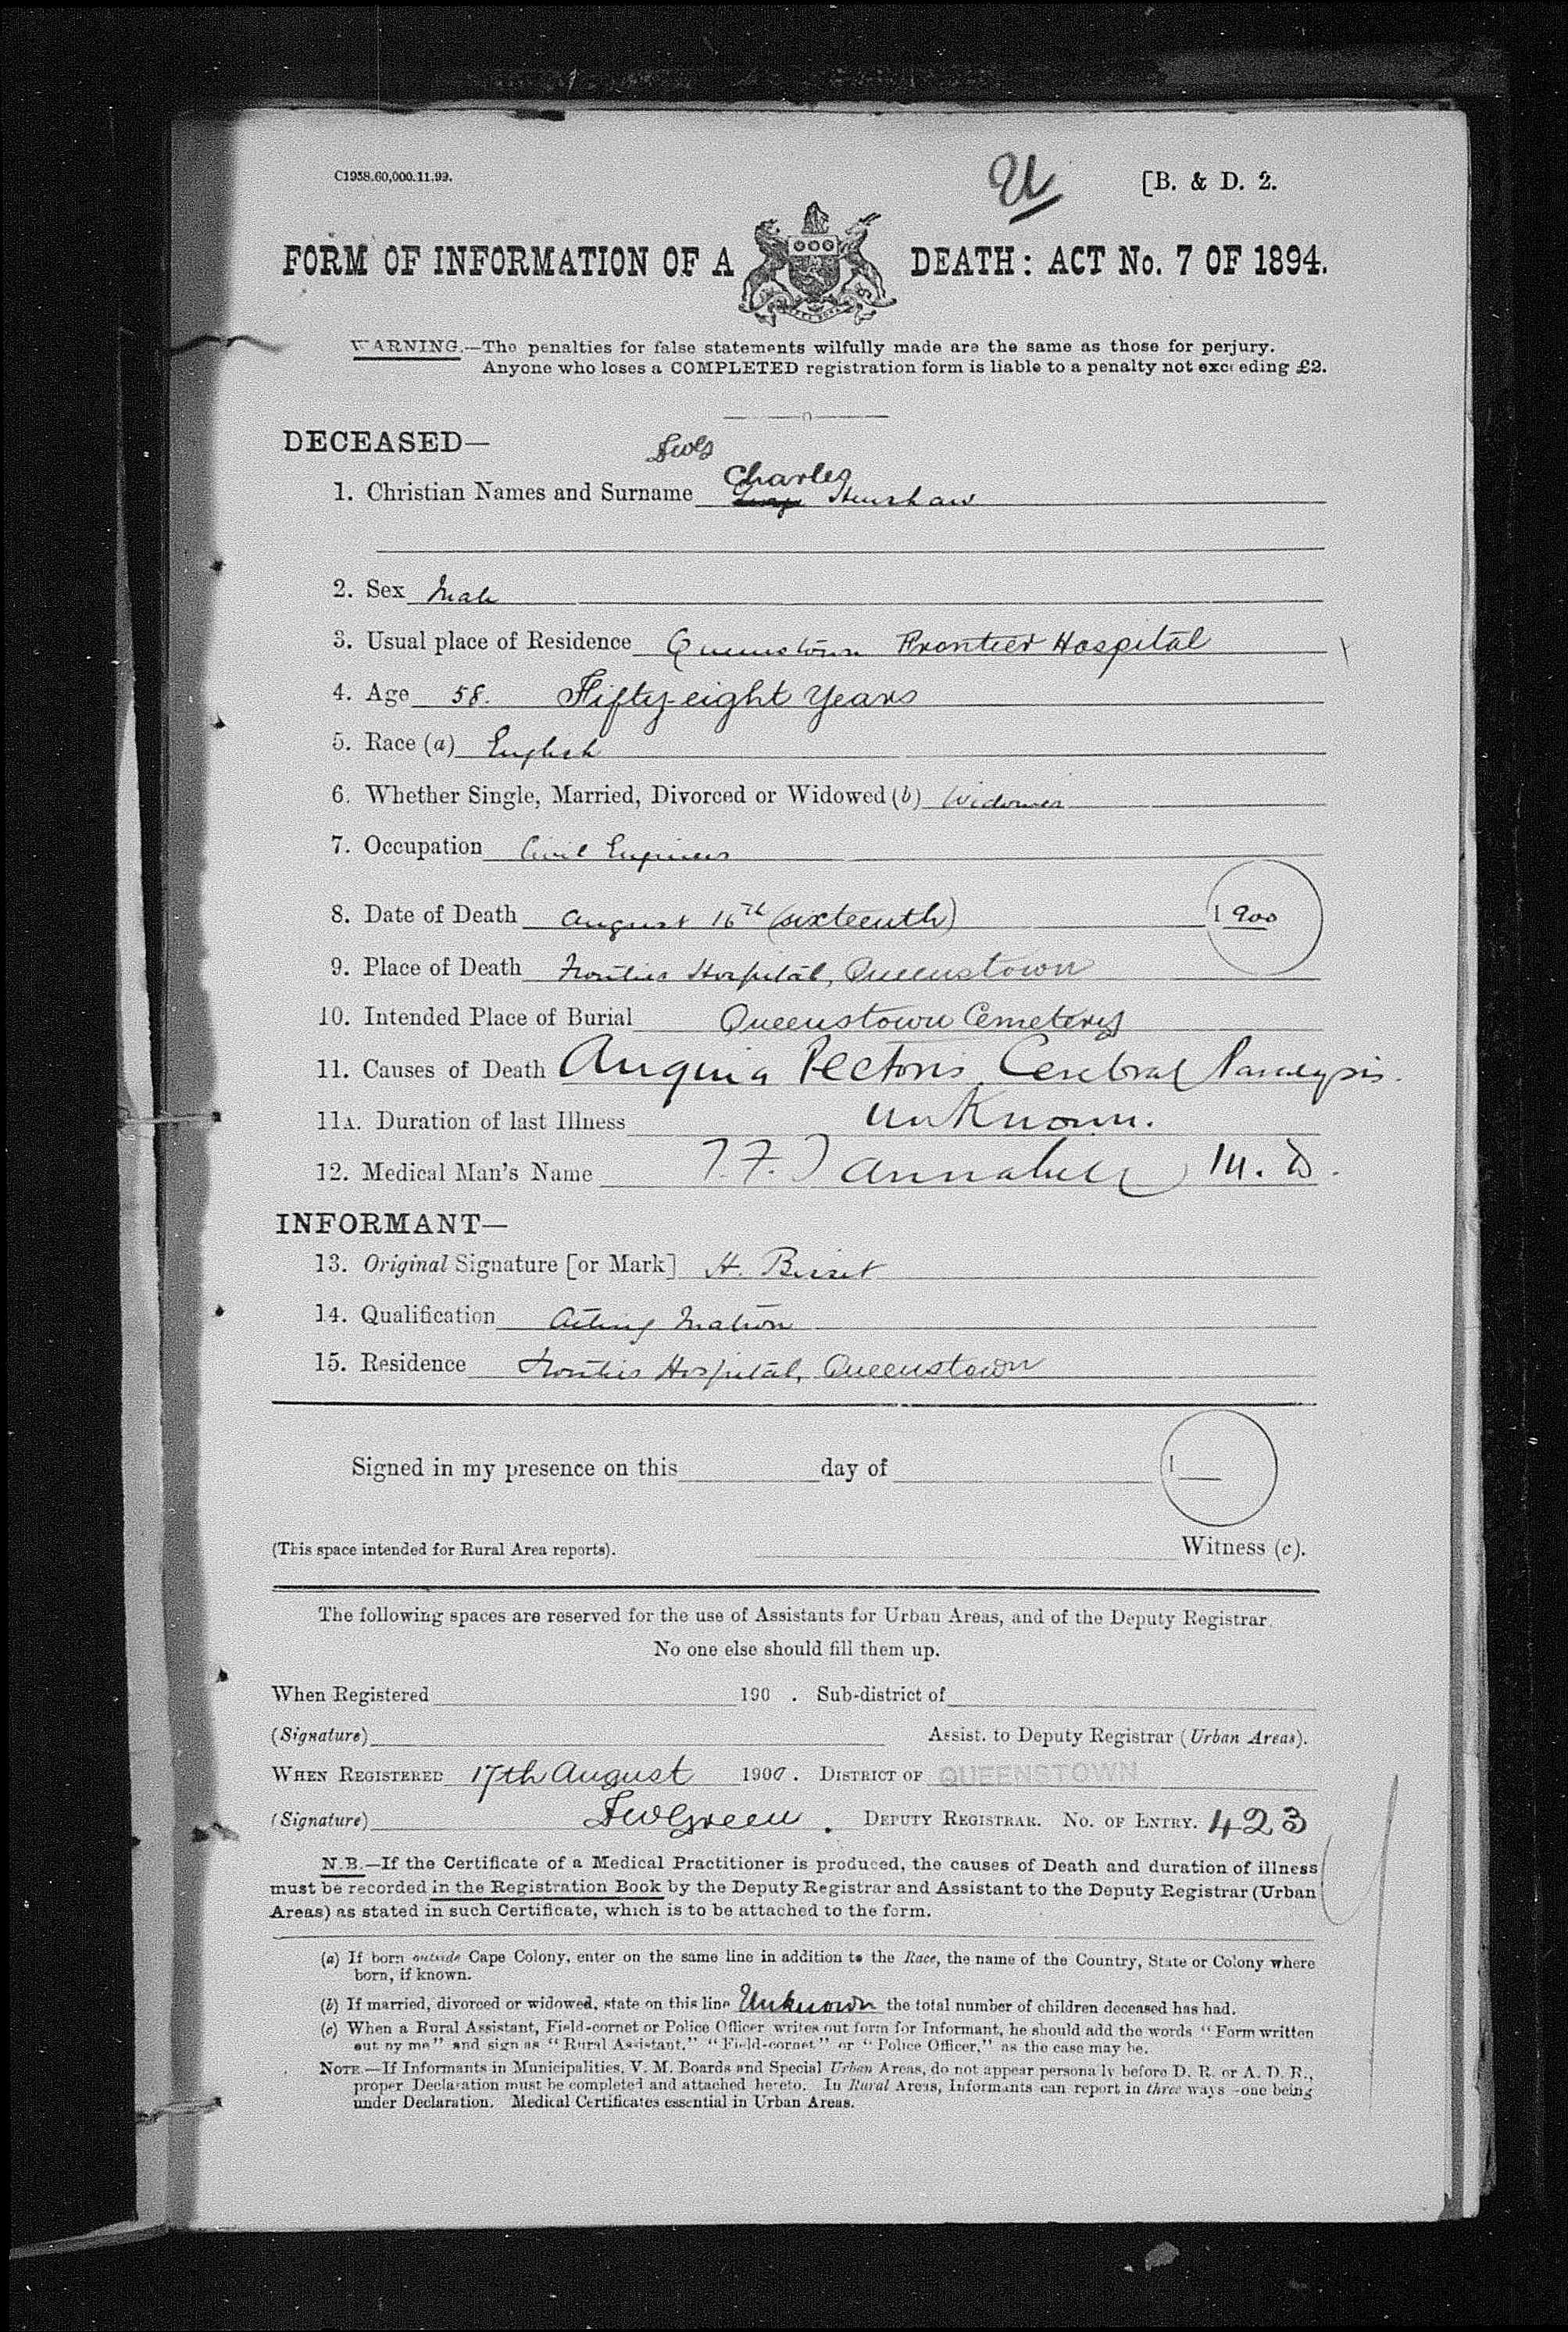 C1958.60,000.11.99.
U
[B. & D. 2.
FORM OF INFORMATION OF A DEATH: ACT No. 7 OF 1894.
WARNING.—The penalties for false statements wilfully made are the same as those for perjury.
Anyone who loses a COMPLETED registration form is liable to a penalty not exceeding £2.
DECEASED—
Charles
1. Christian Names and Surname Henshaw
2. Sex Male
3. Usual place of Residence Queenstown Frontier Hospital
4. Age 58. Fifty-eight years
5. Race (a) English
6. Whether Single, Married, Divorced or Widowed (b) Widower
7. Occupation Civil Engineer
8. Date of Death August 16th (sixteenth) 1900
9. Place of Death Frontier Hospital, Queenstown
10. Intended Place of Burial Queenstown Cemetery
11. Causes of Death Angina Pectoris Cerebral Paralysis.
11A. Duration of last Illness unknown.
12. Medical Man's Name M.D.
INFORMANT—
13. Original Signature [or Mark] H. Birset
14. Qualification Acting Matron
15. Residence Frontier Hospital, Queenstown
Signed in my presence on this day of 1
(This space intended for Rural Area reports). Witness (c).
The following spaces are reserved for the use of Assistants for Urban Areas, and of the Deputy Registrar.
No one else should fill them up.
When Registered 190 . Sub-district of
(Signature) Assist. to Deputy Registrar (Urban Areas).
WHEN REGISTERED 17th August 1900. DISTRICT OF QUEENSTOWN
(Signature) FWGreen. DEPUTY REGISTRAR. NO. OF ENTRY. 423
N.B.—If the Certificate of a Medical Practitioner is produced, the causes of Death and duration of illness
must be recorded in the Registration Book by the Deputy Registrar and Assistant to the Deputy Registrar (Urban
Areas) as stated in such Certificate, which is to be attached to the form.
(a) If born outside Cape Colony, enter on the same line in addition to the Race, the name of the Country, State or Colony where
born, if known.
(b) If married, divorced or widowed, state on this line Unknown the total number of children deceased has had.
(c) When a Rural Assistant, Field-cornet or Police Officer writes out form for Informant, he should add the words "Form written
out by me" and sign as "Rural Assistant," "Field-cornet" or "Police Officer," as the case may be.
NOTE.—If Informants in Municipalities, V. M. Boards and Special Urban Areas, do not appear personally before D. R. or A. D. R.,
proper Declaration must be completed and attached hereto. In Rural Areas, Informants can report in three ways -one being
under Declaration. Medical Certificates essential in Urban Areas.